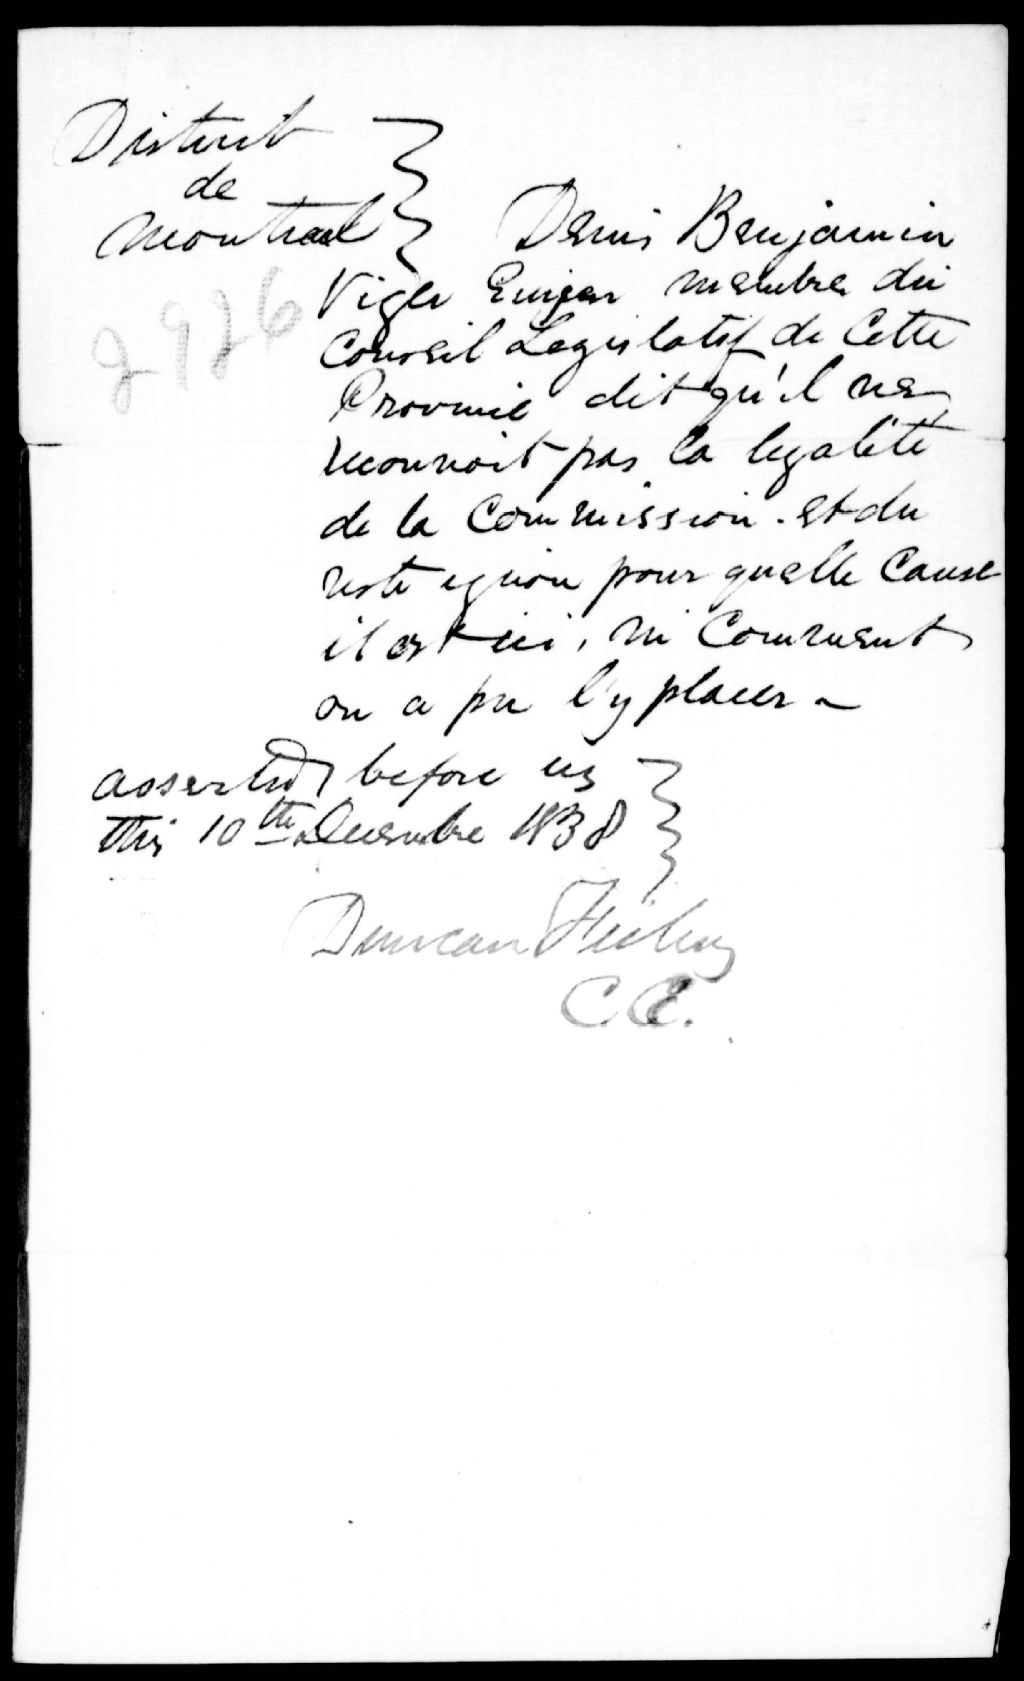 District
de
Montreal
Denis Benjamin
Viger Ecuyer membre du
Conseil Legislatif de Cette
Province dit qu'il ne
reconnoit pas la legalité
de la Commission. et du
reste ignore pour quelle Cause
il est ici, ni Comment
on a pu l'y placer ~
2926
asserted before us
this 10th Decembre 1838
Duncan Fisher
C.